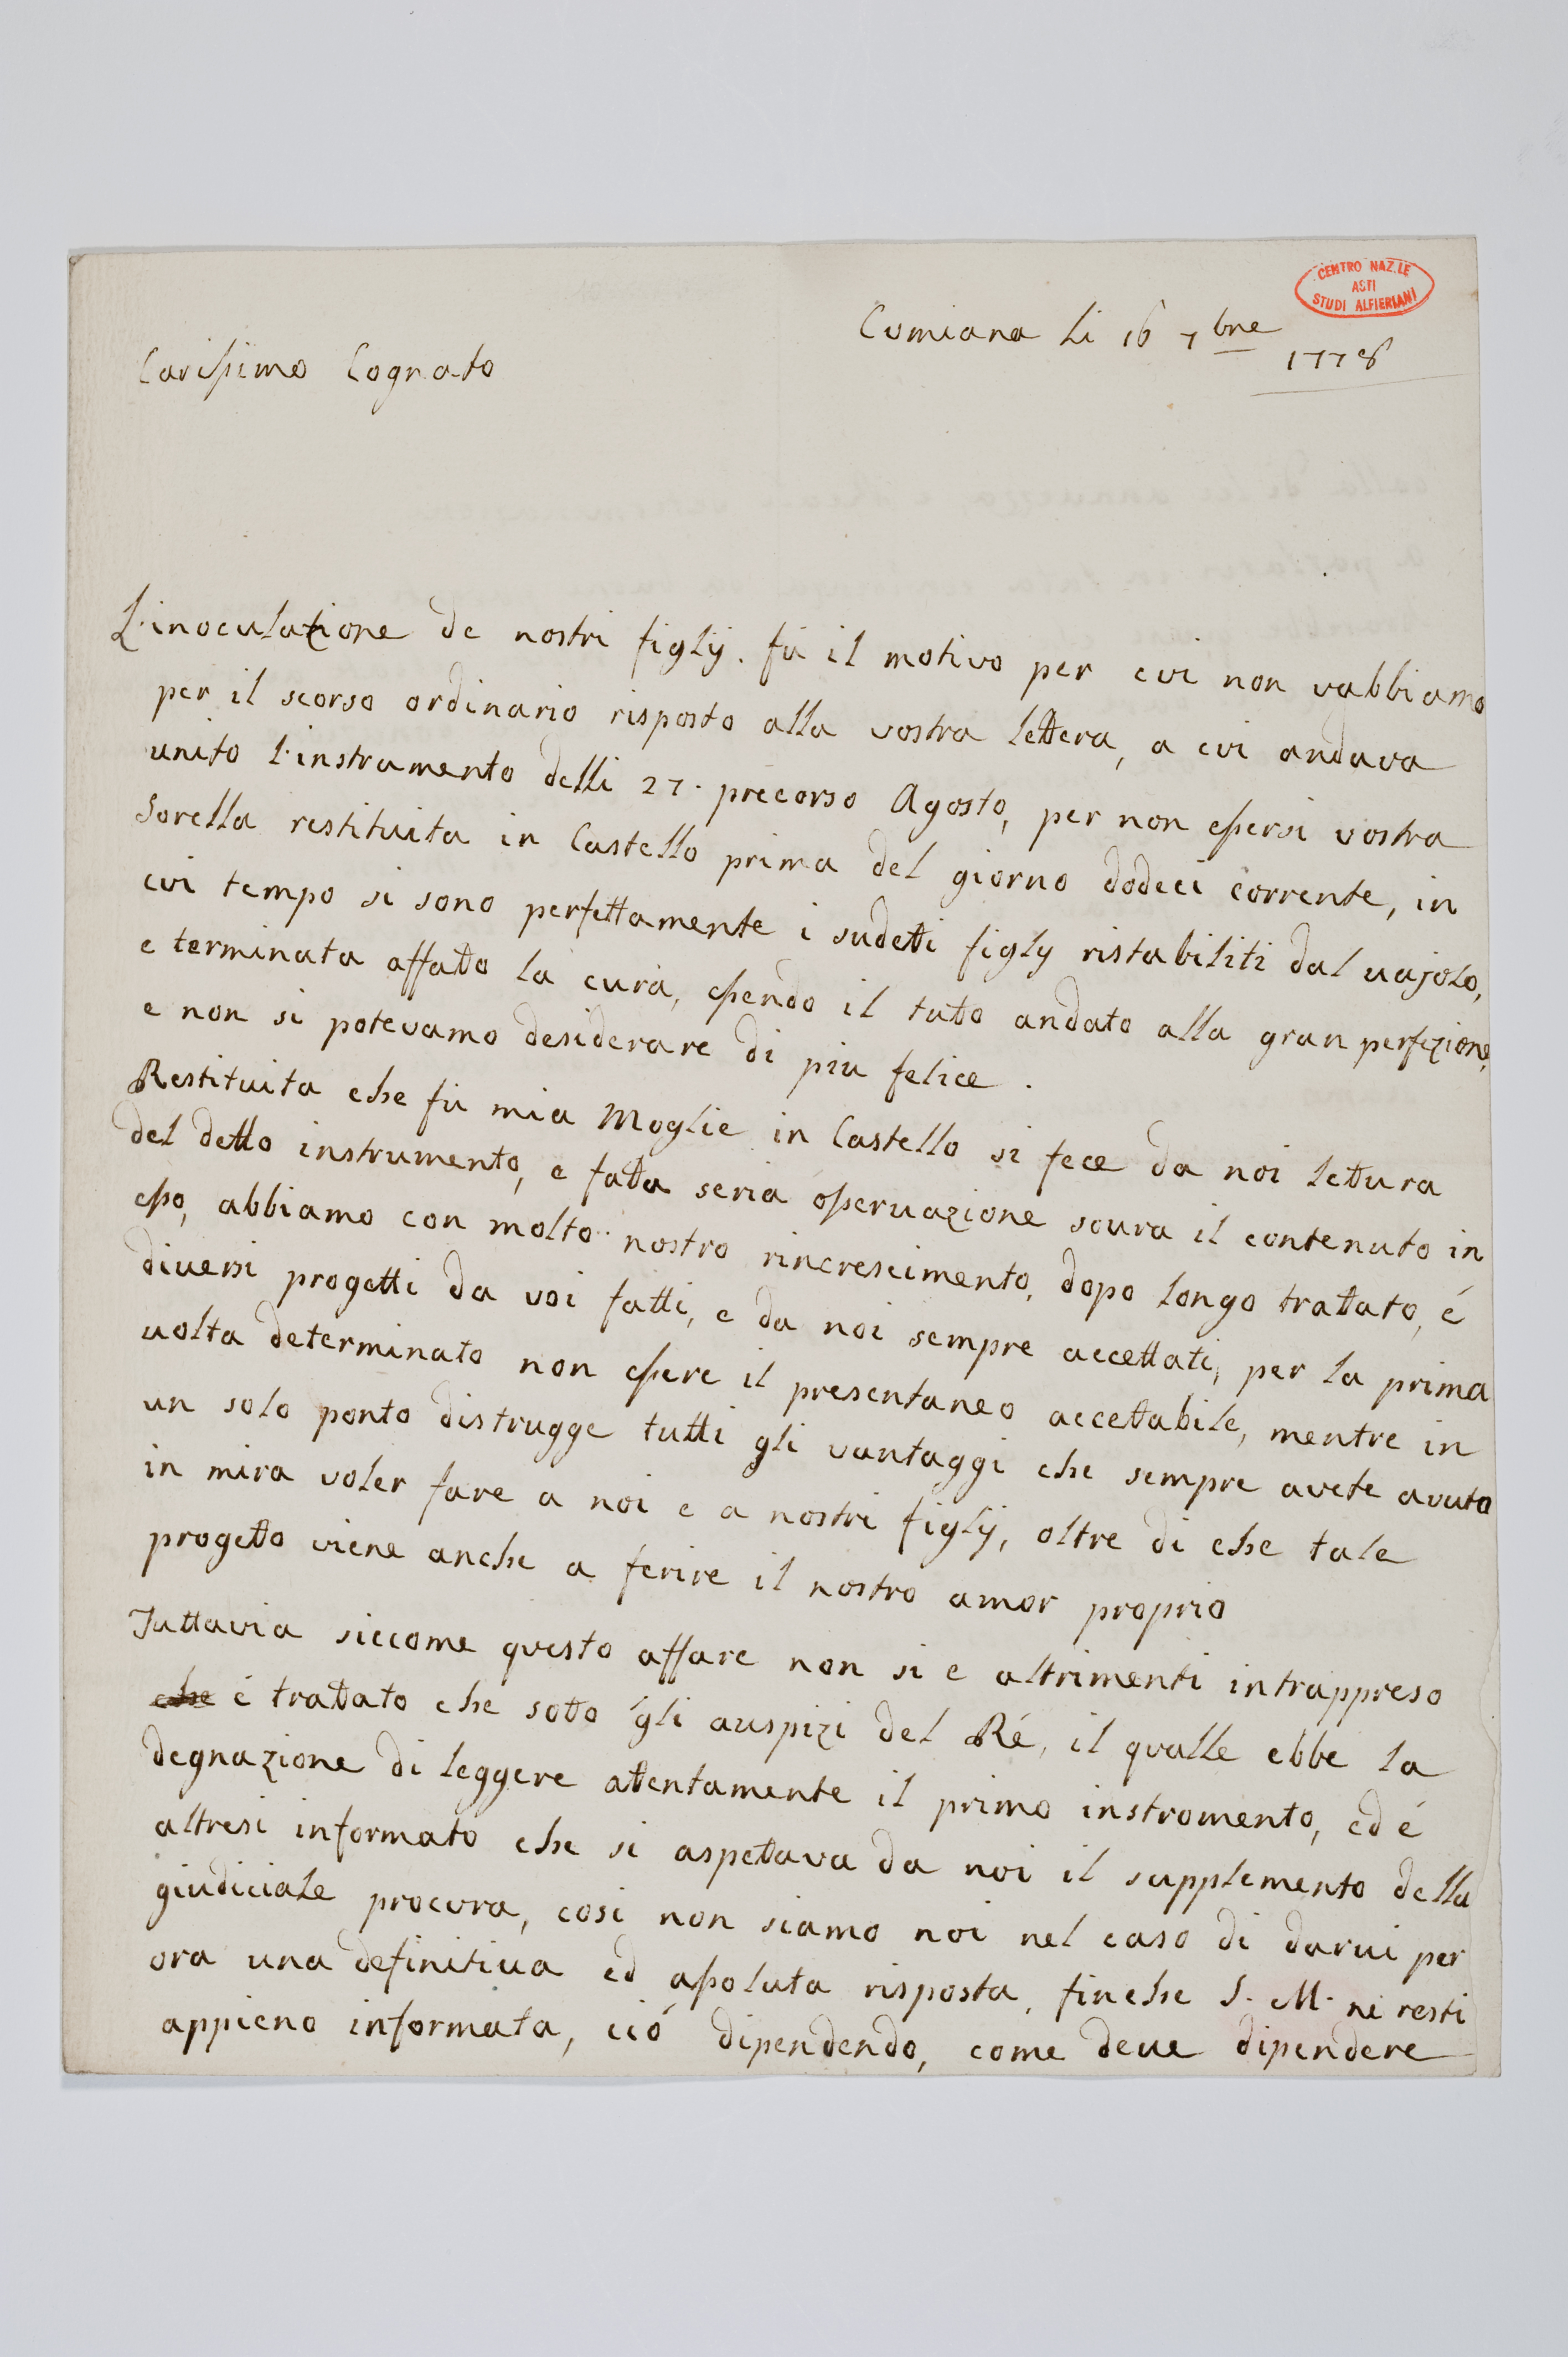 CENTRO NAZ.LE
ASTI
STUDI ALFIERIANI
Cumiana li 16 7bre
1778
Carissimo Cognato
L'inoculazione de nostri figlij. fù il motivo per cui non vabbiamo
per il scorso ordinario risposto alla vostra lettera, a cui andava
unito l'instrumento delli 27. precorso Agosto, per non essersi vostra
Sorella restituita in Castello prima del giorno dodeci corrente, in
cui tempo si sono perfettamente i sudetti figly ristabiliti dal vajolo,
e terminata affatto la cura, essendo il tutto andato alla gran perfezione,
e non si potevamo desiderare di più felice.
Restituita che fù mia Moglie in Castello si fece da noi lettura
del detto instrumento, e fatta seria osservazione soura il contenuto in
esso, abbiamo con molto nostro rincrescimento, dopo longo trattato, é
diuersi progetti da voi fatti, e da noi sempre accettati, per la prima
uolta determinato non essere il presentaneo accettabile, mentre in
un solo ponto distrugge tutti gli vantaggi che sempre avete avuto
in mira voler fare a noi e a nostri figlij, oltre di che tale
progetto viene anche a ferire il nostro amor proprio
Tuttavia siccome questo affare non si e altrimenti intrappreso
che é trattato che sotto gli auspizi del Ré, il qualle ebbe la
degnazione di leggere attentamente il primo instromento, ed é
altresi informato che si aspettava da noi il supplemento della
giudiciale procura, cosi non siamo noi nel caso di darui per
ora una definitiua ed assoluta risposta, finche S. M. ne resti
appieno informata, ció dipendendo, come deue dipendere